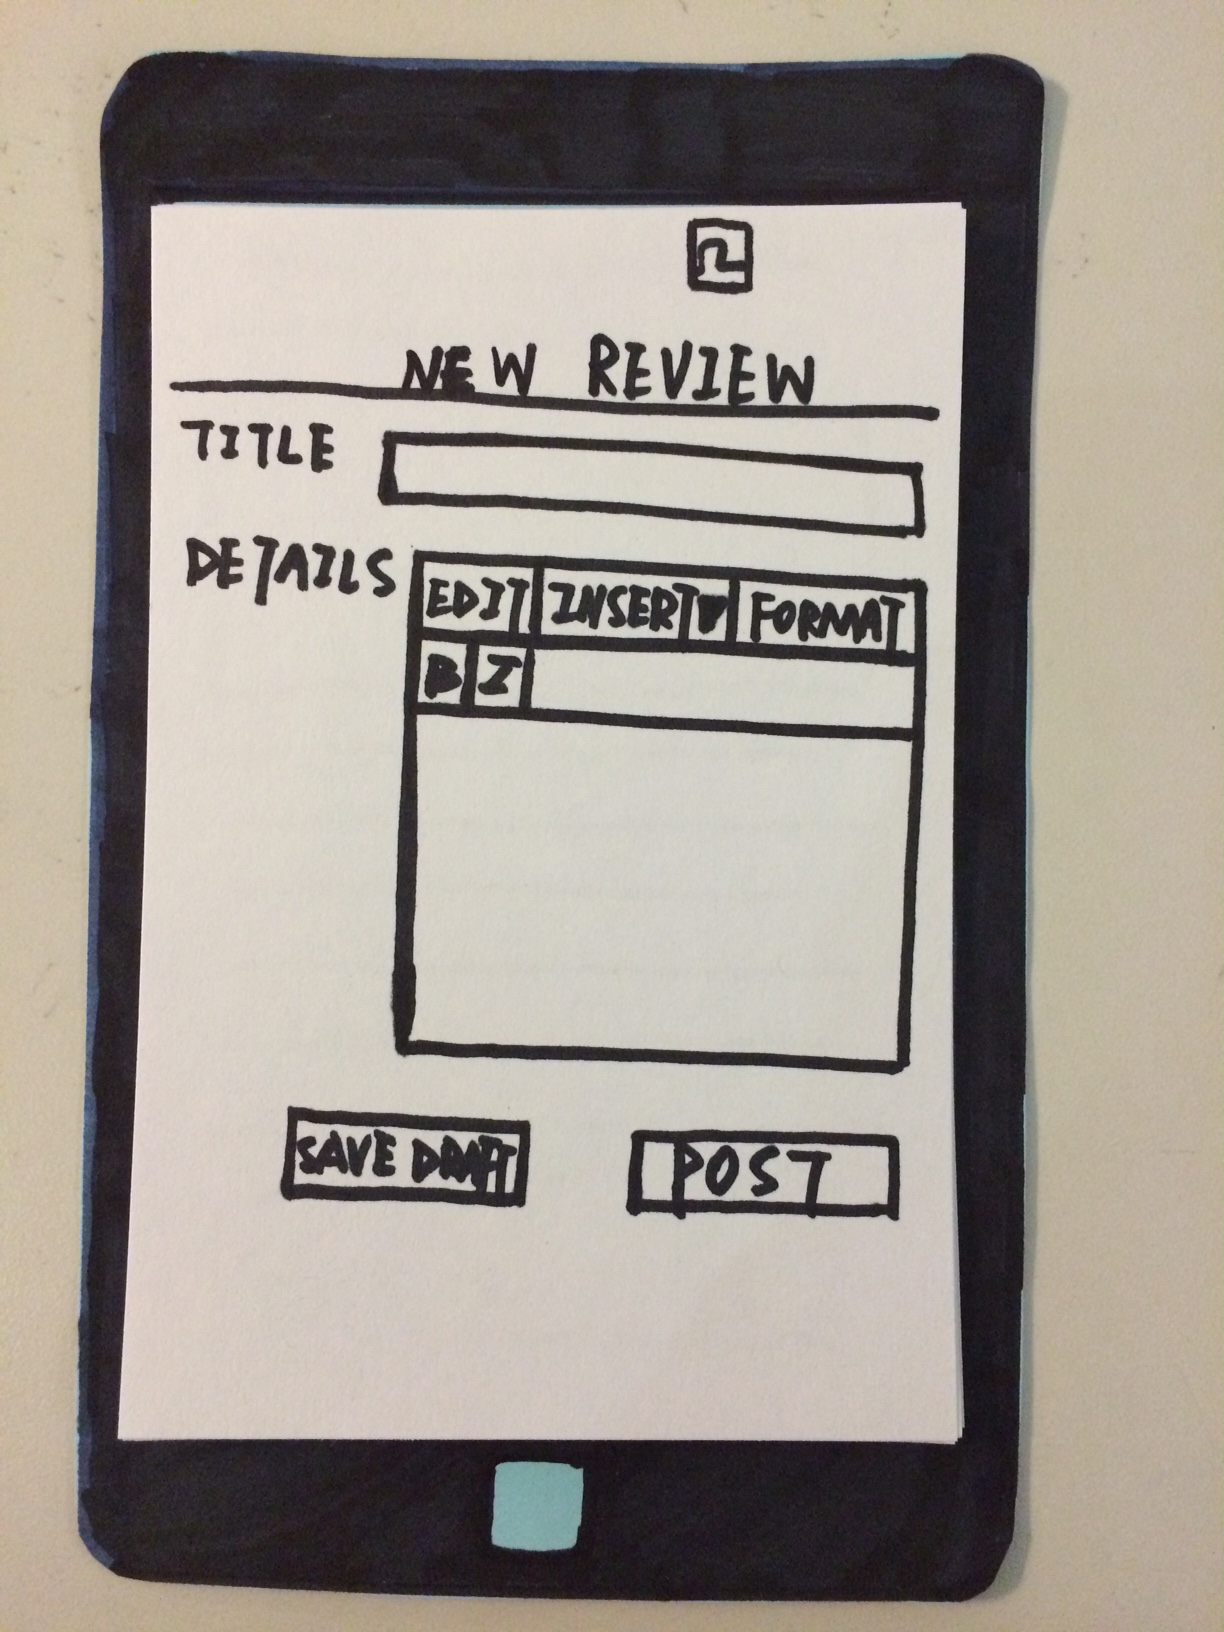 NEW REVIEW
TITLE
DETAILS
EDIT INSERT FORMAT
B I
SAVE DRAFT POST